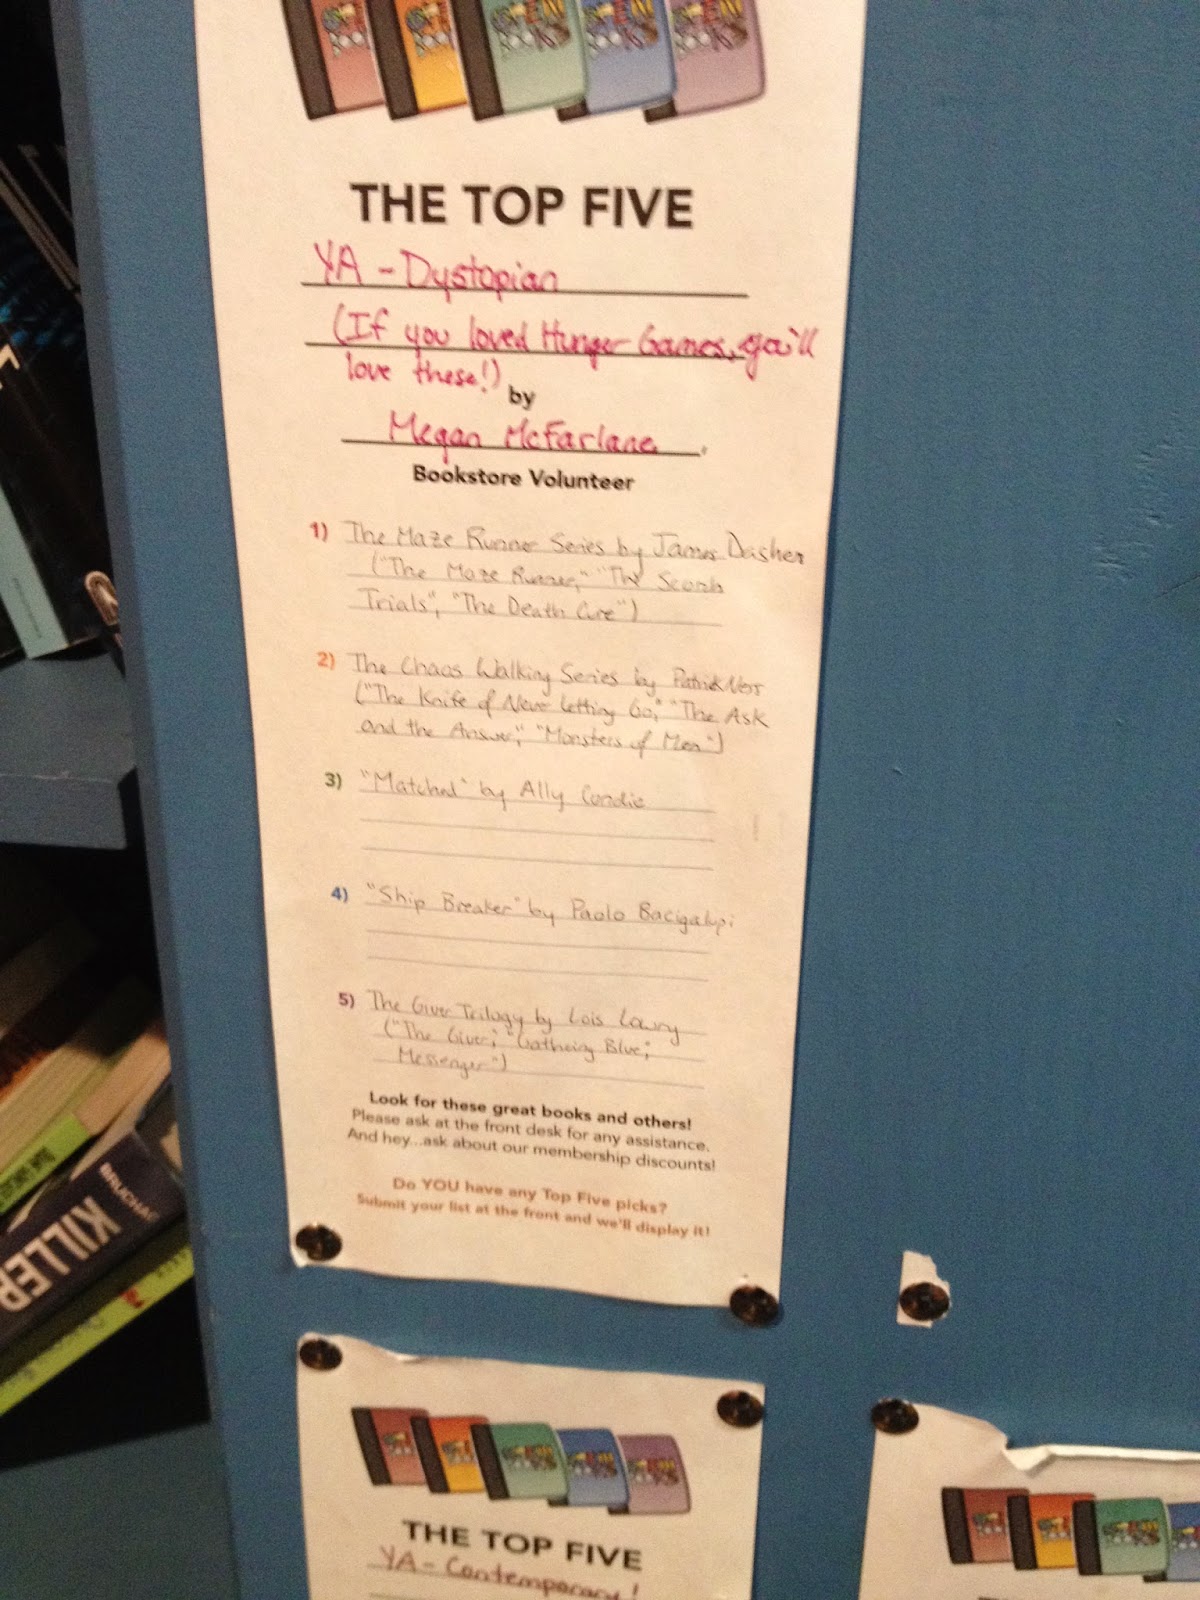 THE TOP FIVE
YA - Dystopian
(If you loved Hunger Games, ya'll
love these!)
by
Megan McFarlane.
Bookstore Volunteer
1) The Maze Runner Series by James Dasher
("The Maze Runner," "The Scorch
Trials", "The Death Cure")
2) The Chaos Walking Series by Patrick Ness
("The Knife of Never Letting Go," "The Ask
and the Answer", "Monsters of Men")
3) "Matched" by Ally Condie
4) "Ship Breaker" by Paolo Bacigalupi
5) The Giver Trilogy by Lois Lowry
("The Giver", "Gathering Blue",
Messenger")
Look for these great books and others!
Please ask at the front desk for any assistance.
And hey...ask about our membership discounts!
Do YOU have any Top Five picks?
Submit your list at the front and we'll display it!
THE TOP FIVE
YA - Contemporary!
BRUCHAC
KILLER